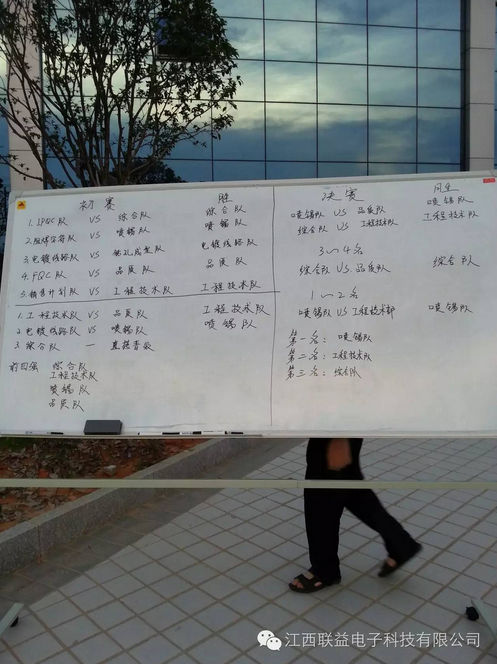 初赛 胜
1. IPQC队 VS 综合队 综合队
2. 阻焊字符队 VS 喷锡队 喷锡队
3. 电镀线路队 VS 钻孔成型队 电镀线路队
4. FQC队 VS 品质队 品质队
5. 销售计划队 VS 工程技术队 工程技术队
1. 工程技术队 VS 品质队 工程技术队
2. 电镀线路队 VS 喷锡队 喷锡队
3. 综合队 — 直接晋级
前四强 综合队
工程技术队
喷锡队
品质队
决赛
喷锡队 VS 品质队 喷锡队
综合队 VS 工程技术队 工程技术队
3~4名
综合队 VS 品质队 综合队
1~2名
喷锡队 VS 工程技术部 喷锡队
第一名: 喷锡队
第二名: 工程技术队
第三名: 综合队
江西联益电子科技有限公司